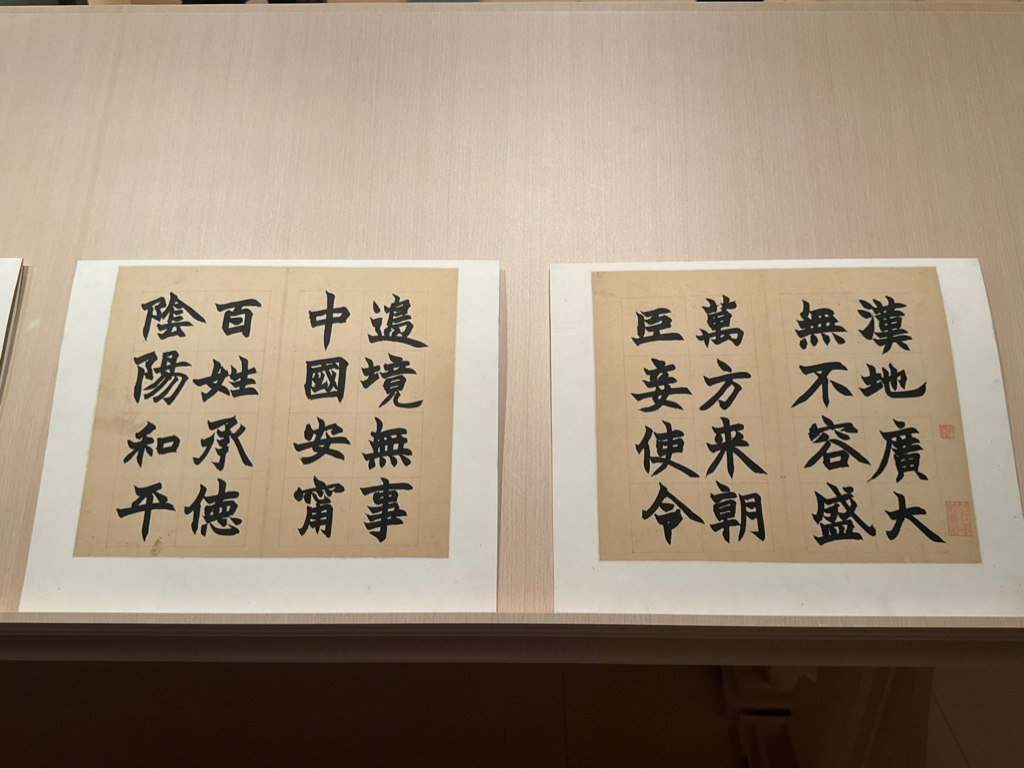 漢地廣大
無不容盛
萬方来朝
臣妾使令
邊境無事
中國安甯
百姓承徳
陰陽和平